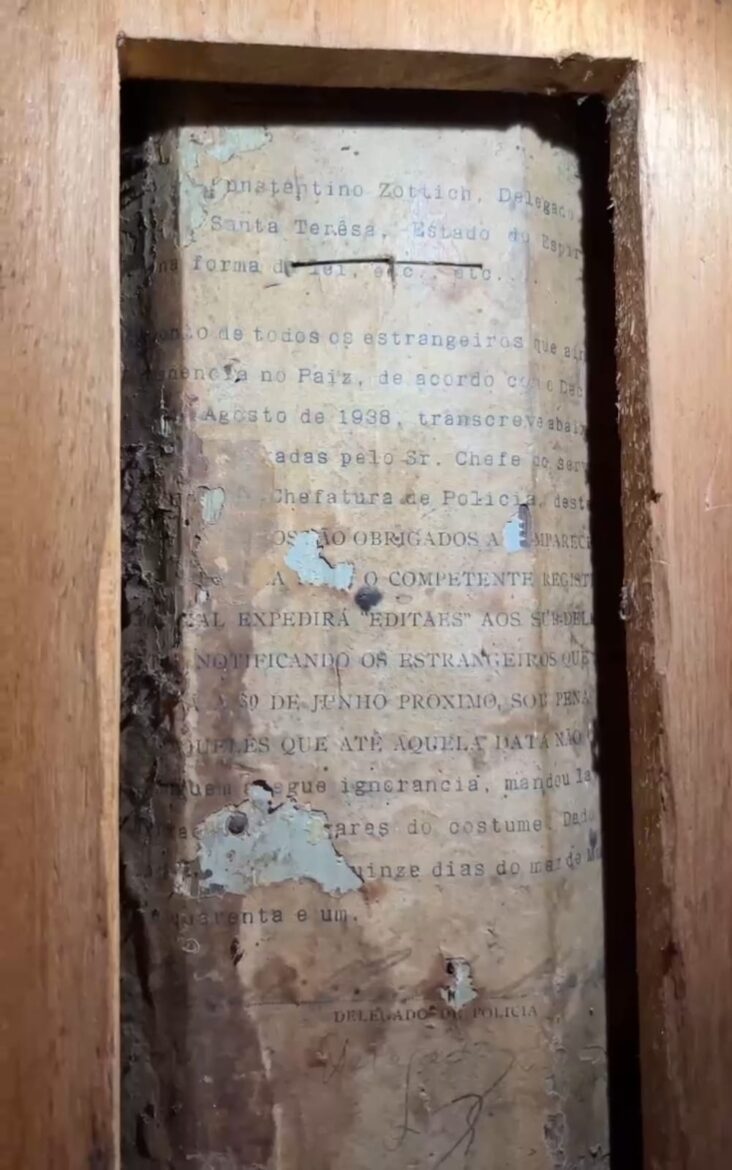 Zottich, Delegado
Santa Terêsa, Estado do
forma d lei, etc., etc.
de todos os estrangeiros que
no Paiz, de acordo
Agosto de 1938, transcreve abai
adas pelo Sr. Chefe do ser
Chefatura de Policia, deste
OS SÃO OBRIGADOS A MPARECE
A O COMPETENTE REGIST
AL EXPEDIRÁ "EDITAES" AOS SUB-DEL
NOTIFICANDO OS ESTRANGEIROS QUE
30 DE JUNHO PROXIMO, SOB PENA
QUELES QUE ATÉ AQUELA DATA NÃO
egue ignorancia, mandou la
ares do costume. Dado
uinze dias do mez de M
quarenta e um.
DELEGADO DE POLICIA